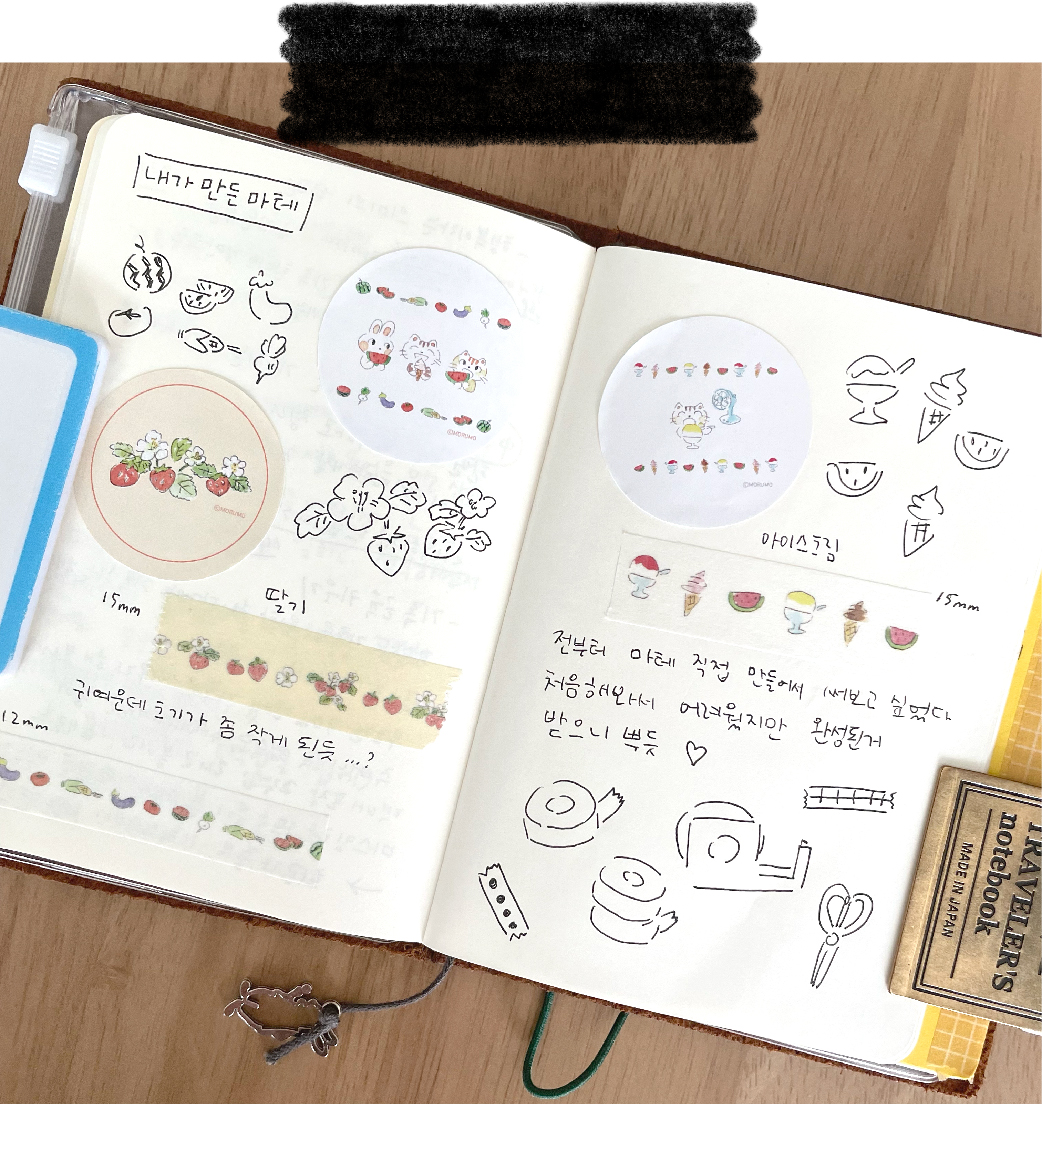 내가 만든 마테
©MORUMO
©MORUMO
딸기
15mm
귀여운데 크기가 좀 작게 된듯...?
12mm
©MORUMO
아이스크림
15mm
전부터 마테 직접 만들어서 써보고 싶었다
처음해봐서 어려웠지만 완성된거
받으니 뿌듯 ♡
TRAVELER'S
notebook
MADE IN JAPAN